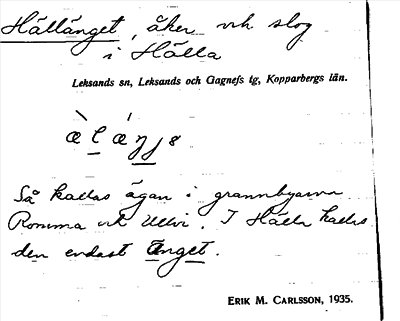 Hällänget, åker och slog
i Hälla
Leksands sn, Leksands och Gagnefs tg, Kopparbergs län.
Så kallas ägan i grannbyarna
Romma och Ullvi. I Hälla kallas
den endast Änget.
ERIK M. CARLSSON, 1935.